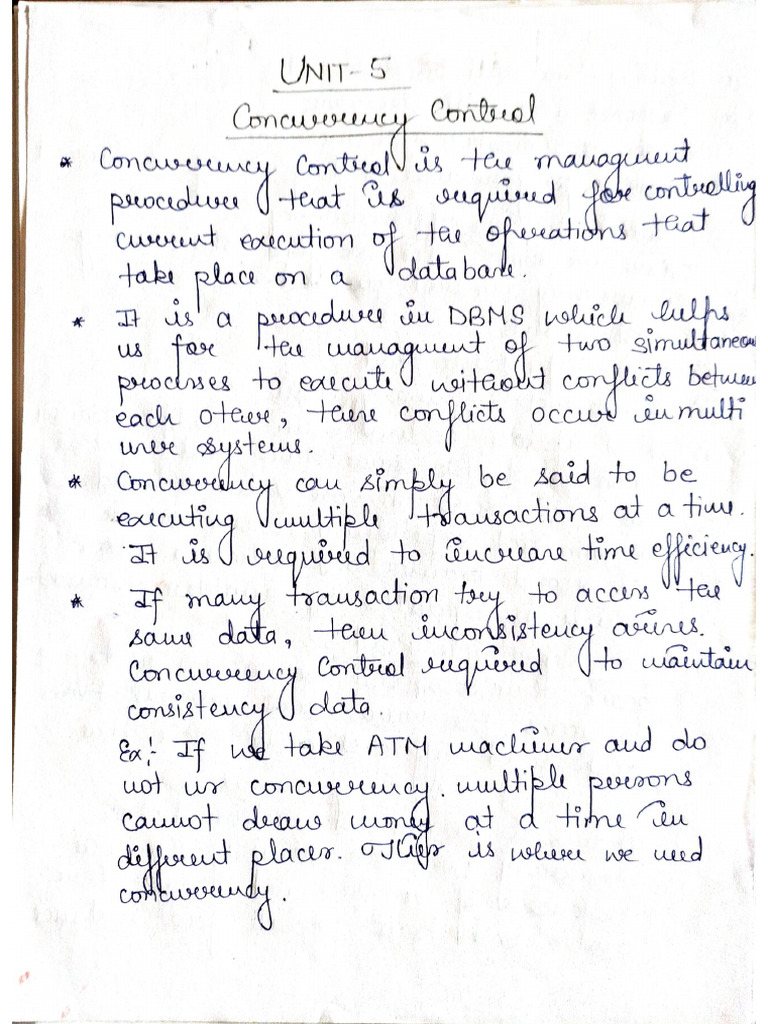 UNIT-5
Concurrency Control
* Concurrency Control is the managment
procedure that is required for controlling
current execution of the operations that
take place on a database.
* It is a procedure in DBMS which helps
us for the managment of two simultaneous
processes to execute without conflicts between
each other, there conflicts occur in multi
user systems.
* Concurrency can simply be said to be
executing multiple transactions at a time.
It is required to increase time efficiency.
* If many transaction try to access the
same data, then inconsistency arises.
Concurrency Control required to maintain
consistency data.
Ex:- If we take ATM machines and do
not us concurrency. multiple persons
cannot draw money at a time in
different places. This is where we need
concurrency.